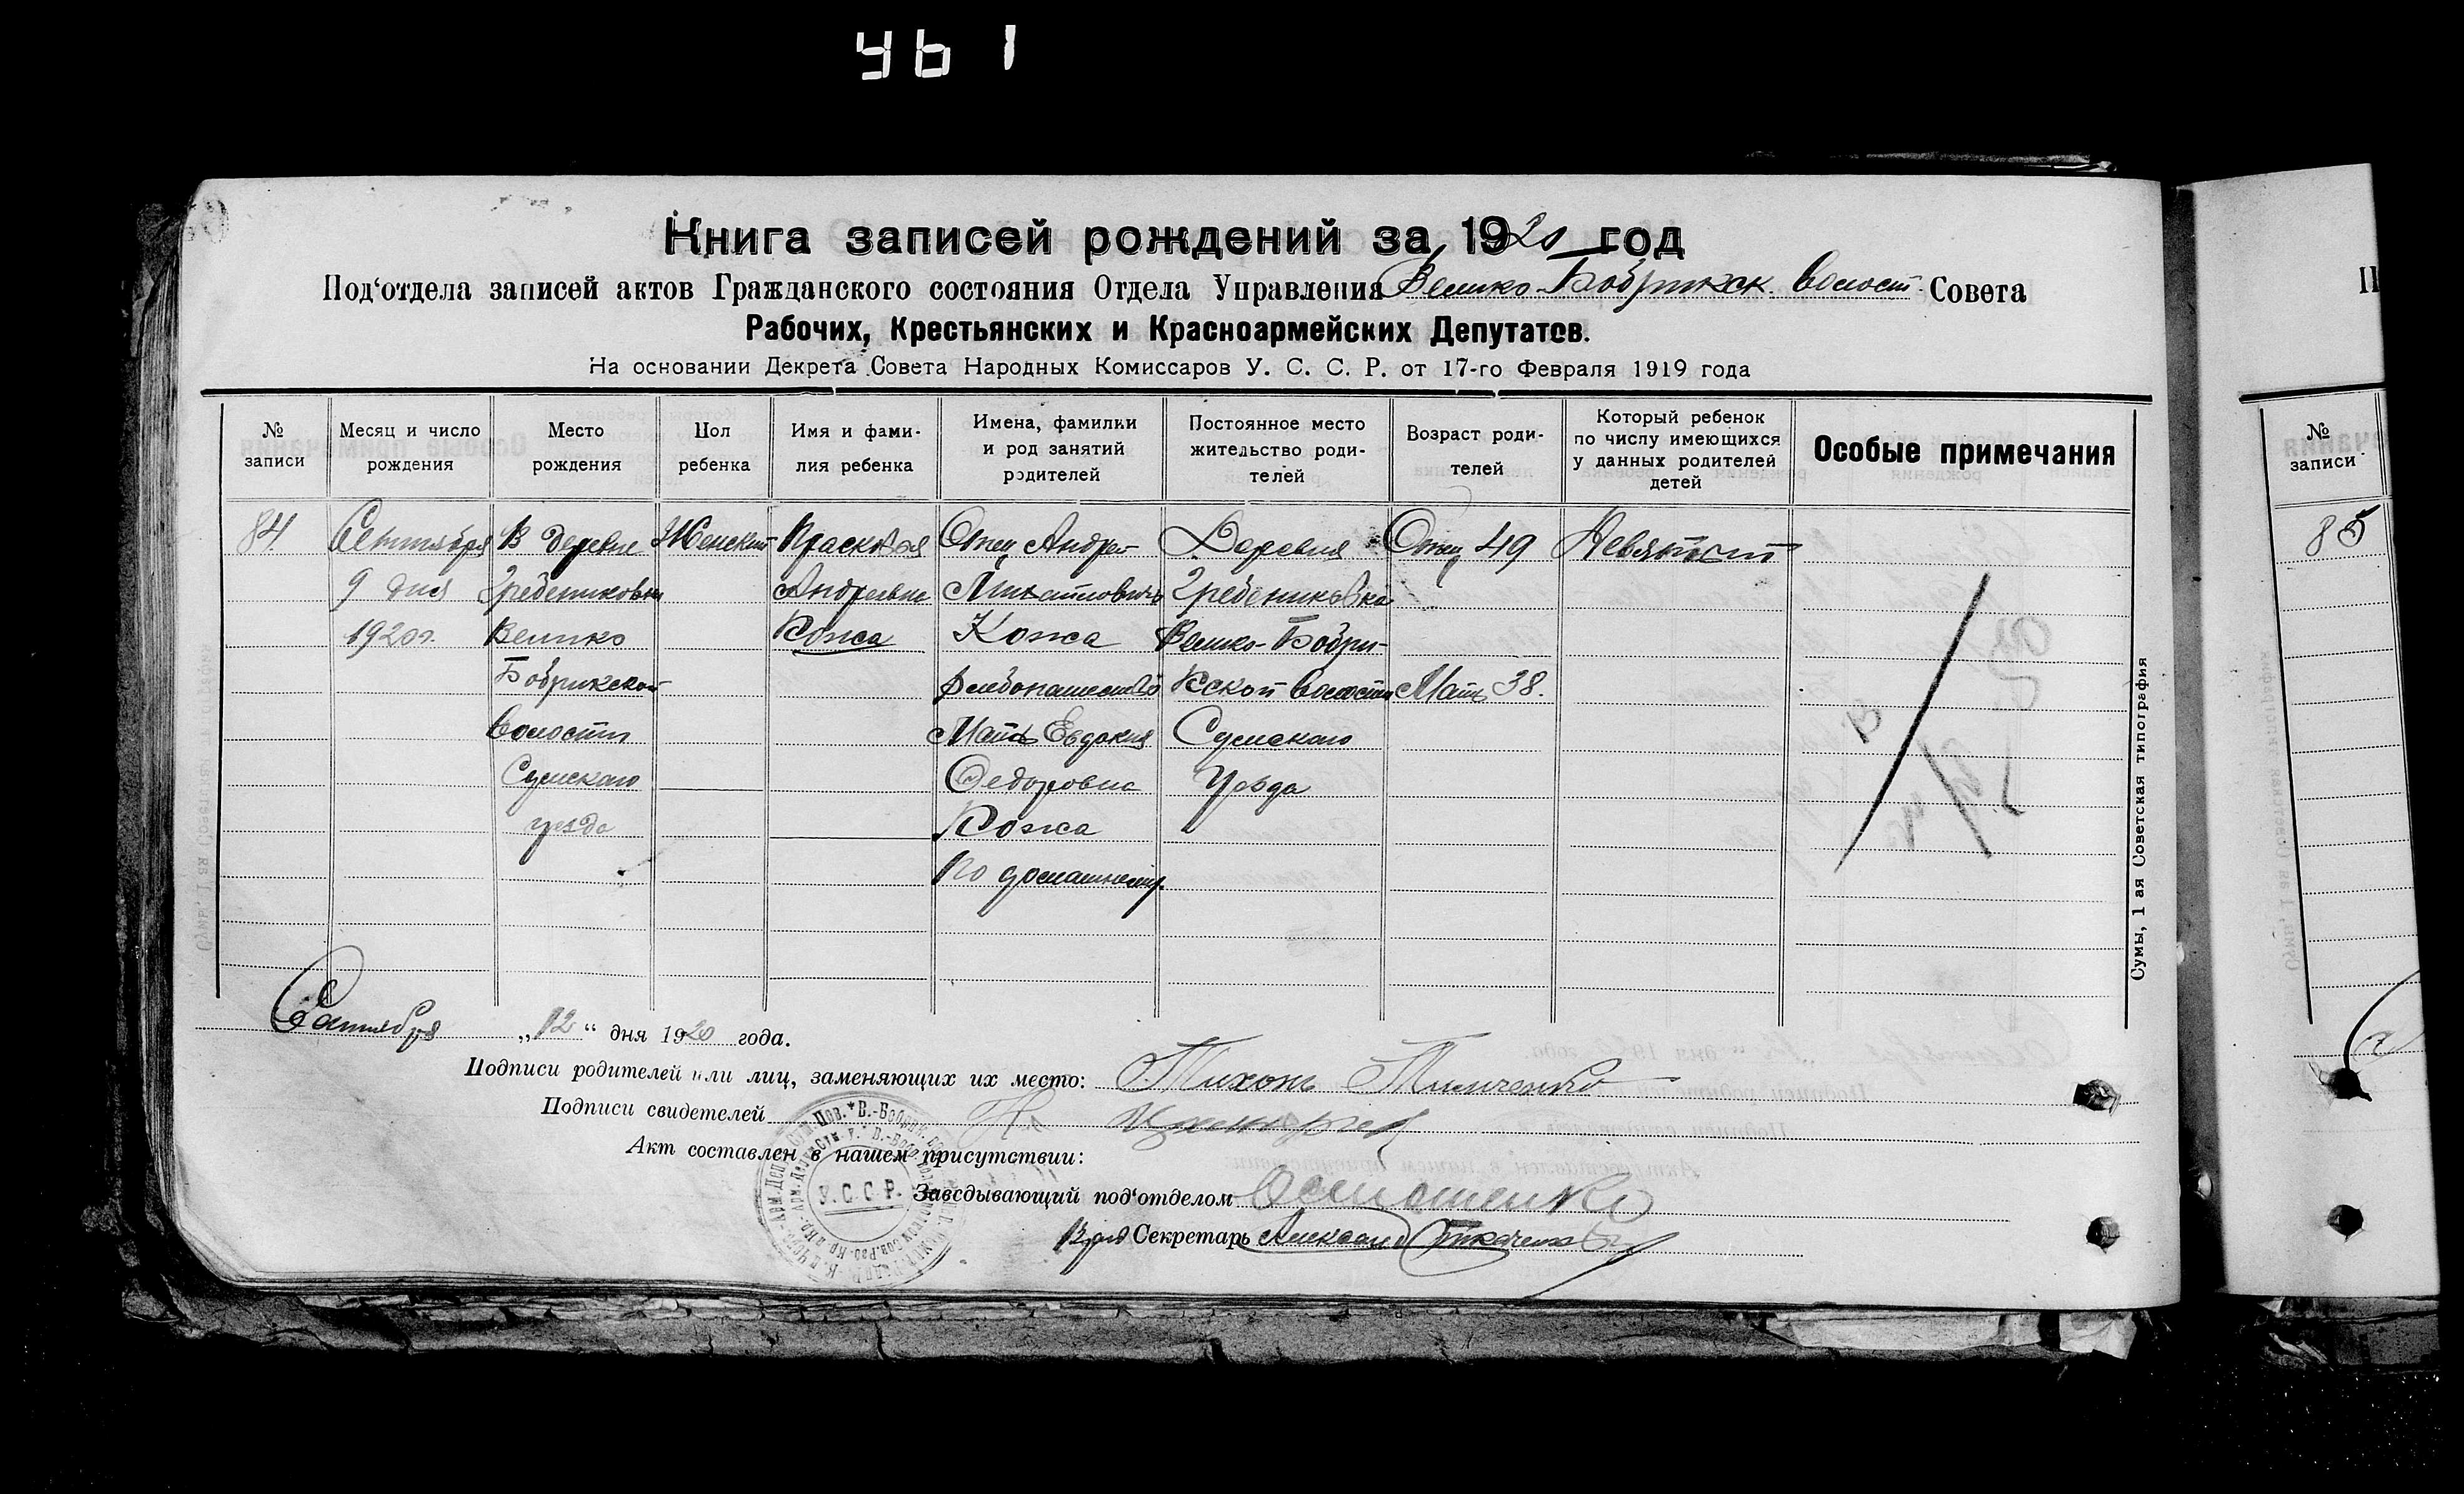 461
Книга записей рождений за 1920 год
Под‘отдела записей актов Гражданского состояния Отдела Управления Велико-Бобрикск. Волост. Совета
Рабочих, Крестьянских и Красноармейских Депутатов.
На основании Декрета Совета Народных Комиссаров У. С. С. Р. от 17-го Февраля 1919 года
№ записи
Месяц и число рождения
Место рождения
Пол ребенка
Имя и фамилия ребенка
Имена, фамилки и род занятий родителей
Постоянное место жительство родителей
Возраст родителей
Который ребенок по числу имеющихся у данных родителей детей
Особые примечания
84.
Сентября
9 дня
1920 г.
В деревне
Гребениковки
Велико
Бобрикской
Волости
Сумскаго
уезда
Женский
Прасковья
Андреевна
Кожа
Отец Андрей
Михайлович
Кожа
Хлебопашество
Мать Евдокия
Федоровна
Кожа
По домашнему.
Деревня
Гребениковка
Велико-Бобри-
кской волости
Сумскаго
Уезда
Отец 49
Мать 38.
Девятый
Сумы, 1 ая Советская типография
Сентября „12“ дня 1920 года.
Подписи родителей или лиц, заменяющих их место: Тихонъ Тимченко
Подписи свидетелей
Акт составлен в нашем присутствии:
У.С.С.Р.
Заведывающий под‘отделом
Врид Секретарь Александ Ткаченко
№ записи
85